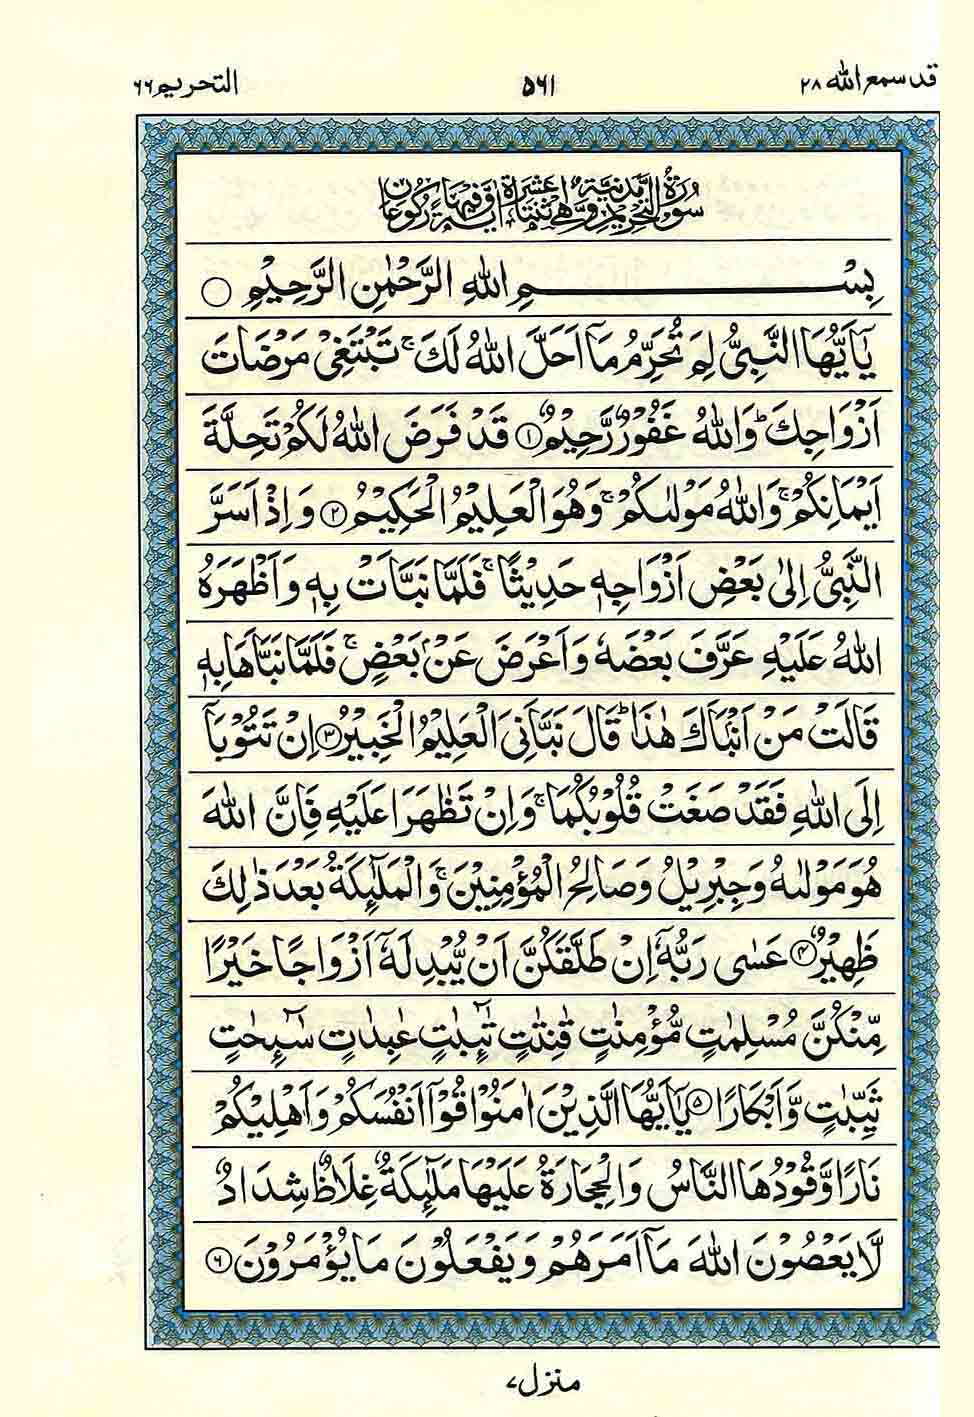 قد سمع الله ۲۸
۵۶۱
التحریم ۶۶
سُوْرَةُ التَّحْرِيْمِ مَدَنِيَّةٌ وَّهِيَ اثْنَتَا عَشْرَةَ اٰيَةً وَّفِيْهَا رُكُوْعَانِ
بِسْمِ اللّٰهِ الرَّحْمٰنِ الرَّحِيْمِ ۝
يٰۤاَيُّهَا النَّبِىُّ لِمَ تُحَرِّمُ مَاۤ اَحَلَّ اللّٰهُ لَكَ ۚ تَبْتَغِىْ مَرْضَاتَ
اَزْوَاجِكَ ؕ وَاللّٰهُ غَفُوْرٌ رَّحِيْمٌ ۝۱ قَدْ فَرَضَ اللّٰهُ لَكُمْ تَحِلَّةَ
اَيْمَانِكُمْ ۚ وَاللّٰهُ مَوْلٰٮكُمْ ۚ وَهُوَ الْعَلِيْمُ الْحَكِيْمُ ۝۲ وَاِذْ اَسَرَّ
النَّبِىُّ اِلٰى بَعْضِ اَزْوَاجِهٖ حَدِيْثًا ۚ فَلَمَّا نَبَّاَتْ بِهٖ وَاَظْهَرَهُ
اللّٰهُ عَلَيْهِ عَرَّفَ بَعْضَهٗ وَاَعْرَضَ عَنْۢ بَعْضٍ ۚ فَلَمَّا نَبَّاَهَا بِهٖ
قَالَتْ مَنْ اَنْۢبَاَكَ هٰذَا ؕ قَالَ نَبَّاَنِىَ الْعَلِيْمُ الْخَبِيْرُ ۝۳ اِنْ تَتُوْبَاۤ
اِلَى اللّٰهِ فَقَدْ صَغَتْ قُلُوْبُكُمَا ۚ وَاِنْ تَظٰهَرَا عَلَيْهِ فَاِنَّ اللّٰهَ
هُوَ مَوْلٰٮهُ وَجِبْرِيْلُ وَصَالِحُ الْمُؤْمِنِيْنَ ۚ وَالْمَلٰٓٮِٕكَةُ بَعْدَ ذٰلِكَ
ظَهِيْرٌ ۝۴ عَسٰى رَبُّهٗۤ اِنْ طَلَّقَكُنَّ اَنْ يُّبْدِلَهٗۤ اَزْوَاجًا خَيْرًا
مِّنْكُنَّ مُسْلِمٰتٍ مُّؤْمِنٰتٍ قٰنِتٰتٍ تٰٓٮِٕبٰتٍ عٰبِدٰتٍ سٰٓٮِٕحٰتٍ
ثَيِّبٰتٍ وَّاَبْكَارًا ۝۵ يٰۤاَيُّهَا الَّذِيْنَ اٰمَنُوْا قُوْۤا اَنْفُسَكُمْ وَاَهْلِيْكُمْ
نَارًا وَّقُوْدُهَا النَّاسُ وَالْحِجَارَةُ عَلَيْهَا مَلٰٓٮِٕكَةٌ غِلَاظٌ شِدَادٌ
لَّا يَعْصُوْنَ اللّٰهَ مَاۤ اَمَرَهُمْ وَيَفْعَلُوْنَ مَا يُؤْمَرُوْنَ ۝۶
منزل ۷